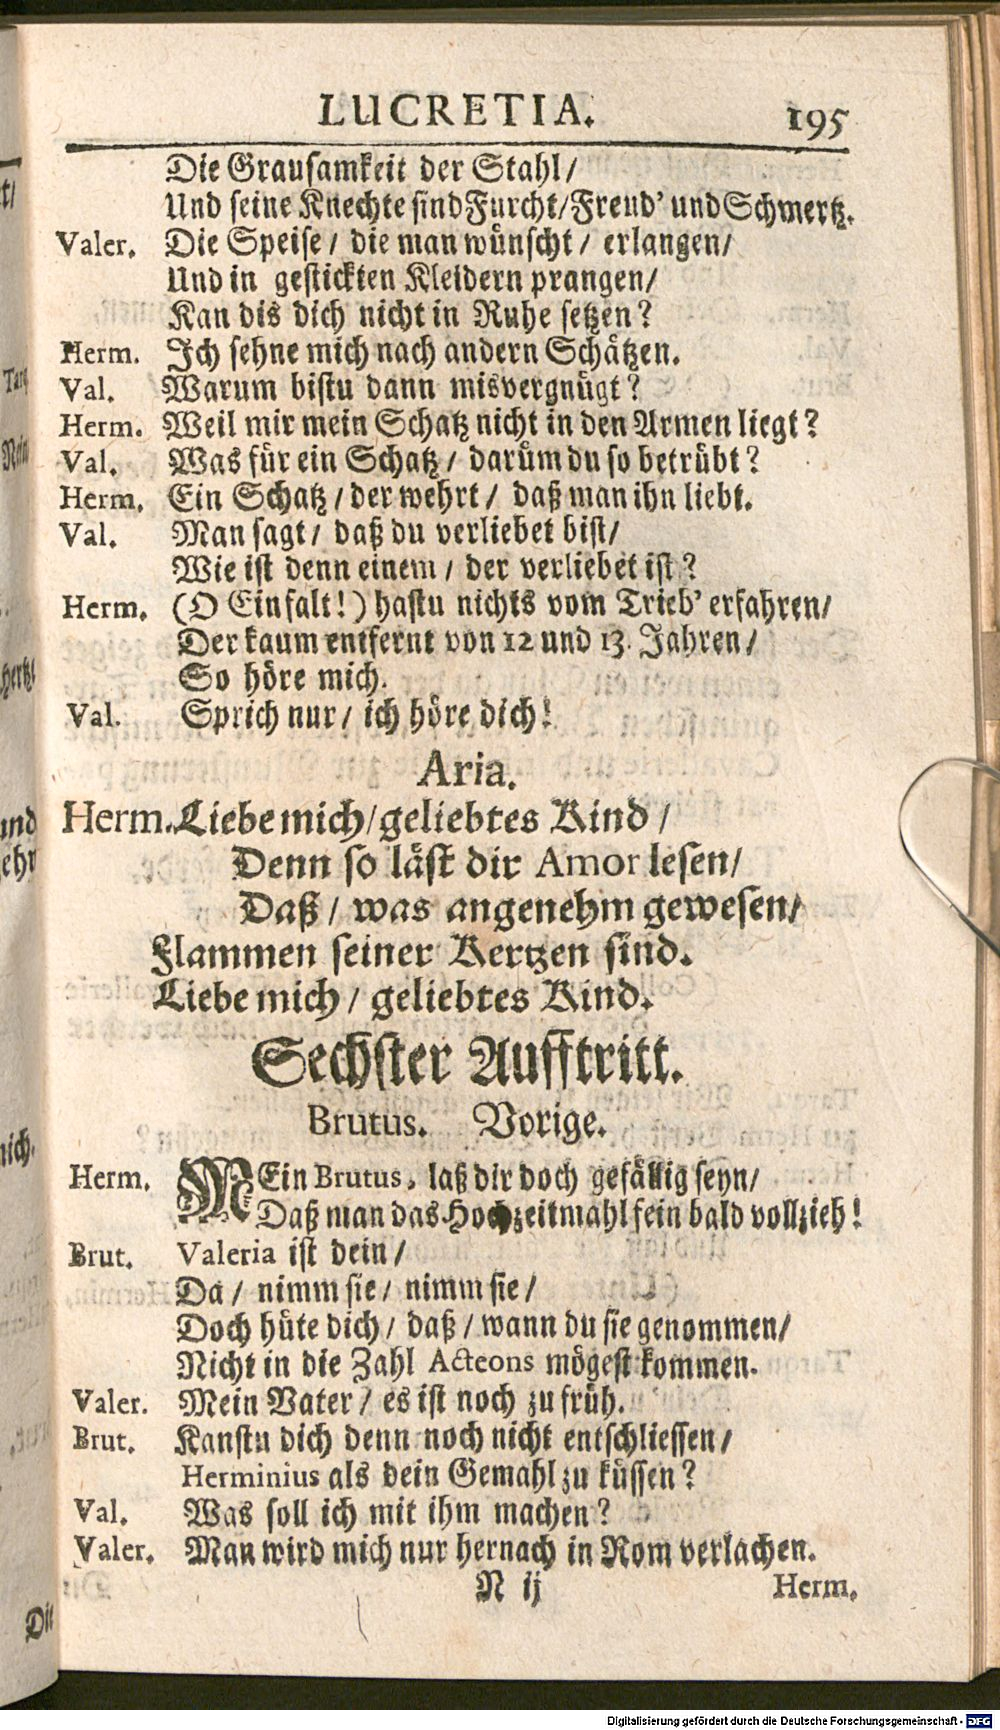 LUCRETIA. 195
Die Grausamkeit der Stahl/
Und seine Knechte sind Furcht/Freud' und Schmertz.
Valer. Die Speise/ die man wünscht/ erlangen/
Und in gestickten Kleidern prangen/
Kan dis dich nicht in Ruhe setzen?
Herm. Ich sehne mich nach andern Schätzen.
Val. Warum bistu dann misvergnügt?
Herm. Weil mir mein Schatz nicht in den Armen liegt?
Val. Was für ein Schatz/ darüm du so betrübt?
Herm. Ein Schatz/ der wehrt/ daß man ihn liebt.
Val. Man sagt/ daß du verliebet bist/
Wie ist denn einem/ der verliebet ist?
Herm. (O Einfalt!) hastu nichts vom Trieb' erfahren/
Der kaum entfernt von 12 und 13. Jahren/
So höre mich.
Val. Sprich nur/ ich höre dich!
Aria.
Herm. Liebe mich/geliebtes Kind/
Denn so läst dir Amor lesen/
Daß/ was angenehm gewesen/
Flammen seiner Kertzen sind.
Liebe mich/ geliebtes Kind.
Sechster Aufftritt.
Brutus. Vorige.
Herm. MEin Brutus, laß dir doch gefällig seyn/
Daß man das Hochzeitmahl fein bald vollzieh!
Brut. Valeria ist dein/
Da/ nimm sie/ nimm sie/
Doch hüte dich/ daß/ wann du sie genommen/
Nicht in die Zahl Acteons mögest kommen.
Valer. Mein Vater/ es ist noch zu früh.
Brut. Kanstu dich denn noch nicht entschliessen/
Herminius als dein Gemahl zu küssen?
Val. Was soll ich mit ihm machen?
Valer. Man wird mich nur hernach in Rom verlachen.
N ij Herm.
Digitalisierung gefördert durch die Deutsche Forschungsgemeinschaft - DFG